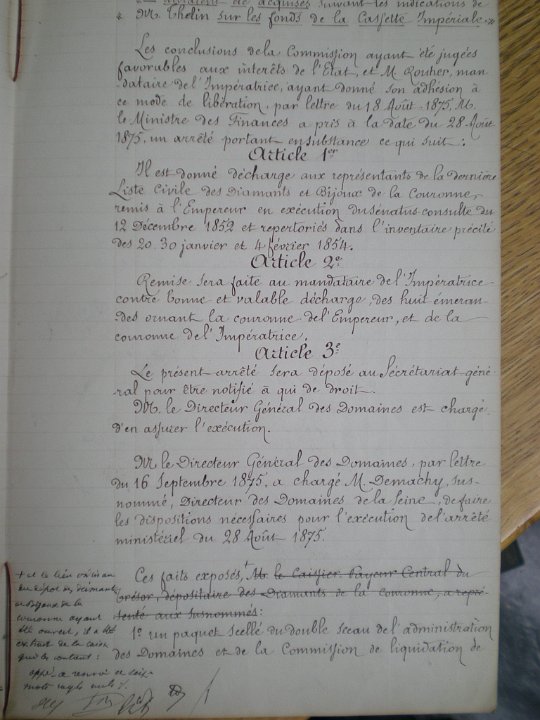 acquises suivant les indications de
« M. Thelin sur les fonds de la Cassette Impériale. »
Les conclusions de la Commission ayant été jugées
favorables aux intérêts de l'Etat, et M. Rouher, man-
dataire de l'Impératrice, ayant donné son adhésion à
ce mode de libération, par lettre du 18 Août 1875, M.
le Ministre des Finances a pris à la date du 28 Août
1875, un arrêté portant en substance ce qui suit :
Article 1er
Il est donné décharge aux représentants de la dernière
Liste Civile des Diamants et Bijoux de la Couronne,
remis à l'Empereur en exécution du sénatus-consulte du
12 Décembre 1852 et repertoriés dans l'inventaire précité
des 20. 30 janvier et 4 février 1854.
Article 2e
Remise sera faite au mandataire de l'Impératrice
contre bonne et valable décharge, des huit émerau-
des ornant la couronne de l'Empereur, et de la
couronne de l'Impératrice.
Article 3e
Le présent arrêté sera déposé au Secrétariat géné-
ral pour être notifié à qui de droit.
M. le Directeur Général des Domaines est chargé
d'en assurer l'exécution.
M. le Directeur Général des Domaines, par lettre
du 16 Septembre 1875, a chargé M. Demachy, sus-
nommé, Directeur des Domaines de la Seine, de faire
les dispositions nécessaires pour l'exécution de l'arrêté
ministériel du 28 Août 1875.
Ces faits exposés, M. le Caissier Payeur Central du
trésor, dépositaire des Diamants de la couronne, a repré-
senté aux susnommés :
1° un paquet scellé du double sceau de l'administration
des Domaines et de la Commission de liquidation de
+ et le lieu
du dépôt des diamants
et bijoux de la
couronne ayant
été ouvert, il a été
extrait de la caisse
qui les contient :
mots rayés nuls